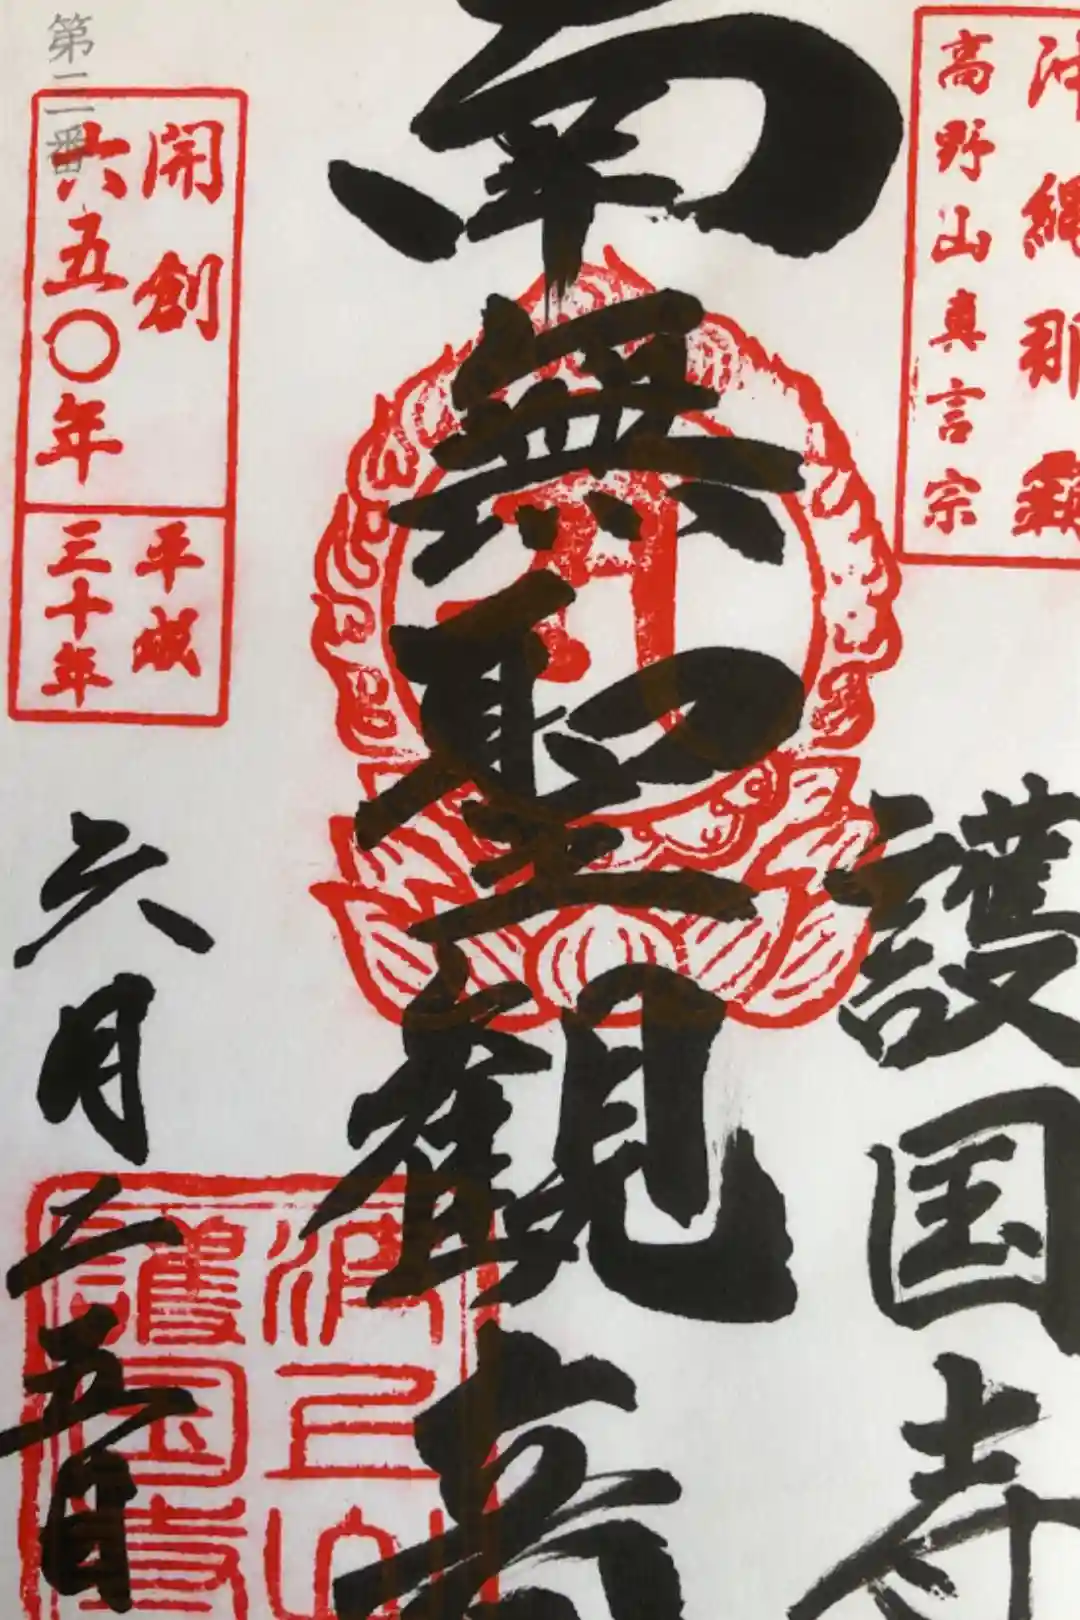 沖縄那覇
高野山真言宗
護国寺
南無聖観音
第二番
開創
六五〇年
平成
三十年
六月二五日
波上山
護国寺